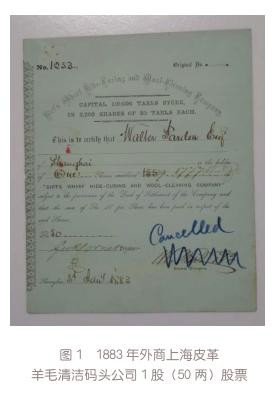 No. 1033
Original No
Gift's Wharf Hide-Curing and Wool-Cleaning Company
CAPITAL TAELS SYCEE,
IN 2,200 SHARES OF 50 TAELS EACH.
This is to certify that Walter
of Shanghai is the holder
of One Share numbered
"GIFT'S WHARF HIDE-CURING AND WOOL-CLEANING COMPANY"
subject to the provisions of the Deed of Settlement of the Company and
that the sum of Tls. 50 per Share has been paid in respect of the
said Shares.
Cancelled
Shanghai, Jany 1883
图1 1883年外商上海皮革
羊毛清洁码头公司1股（50两）股票